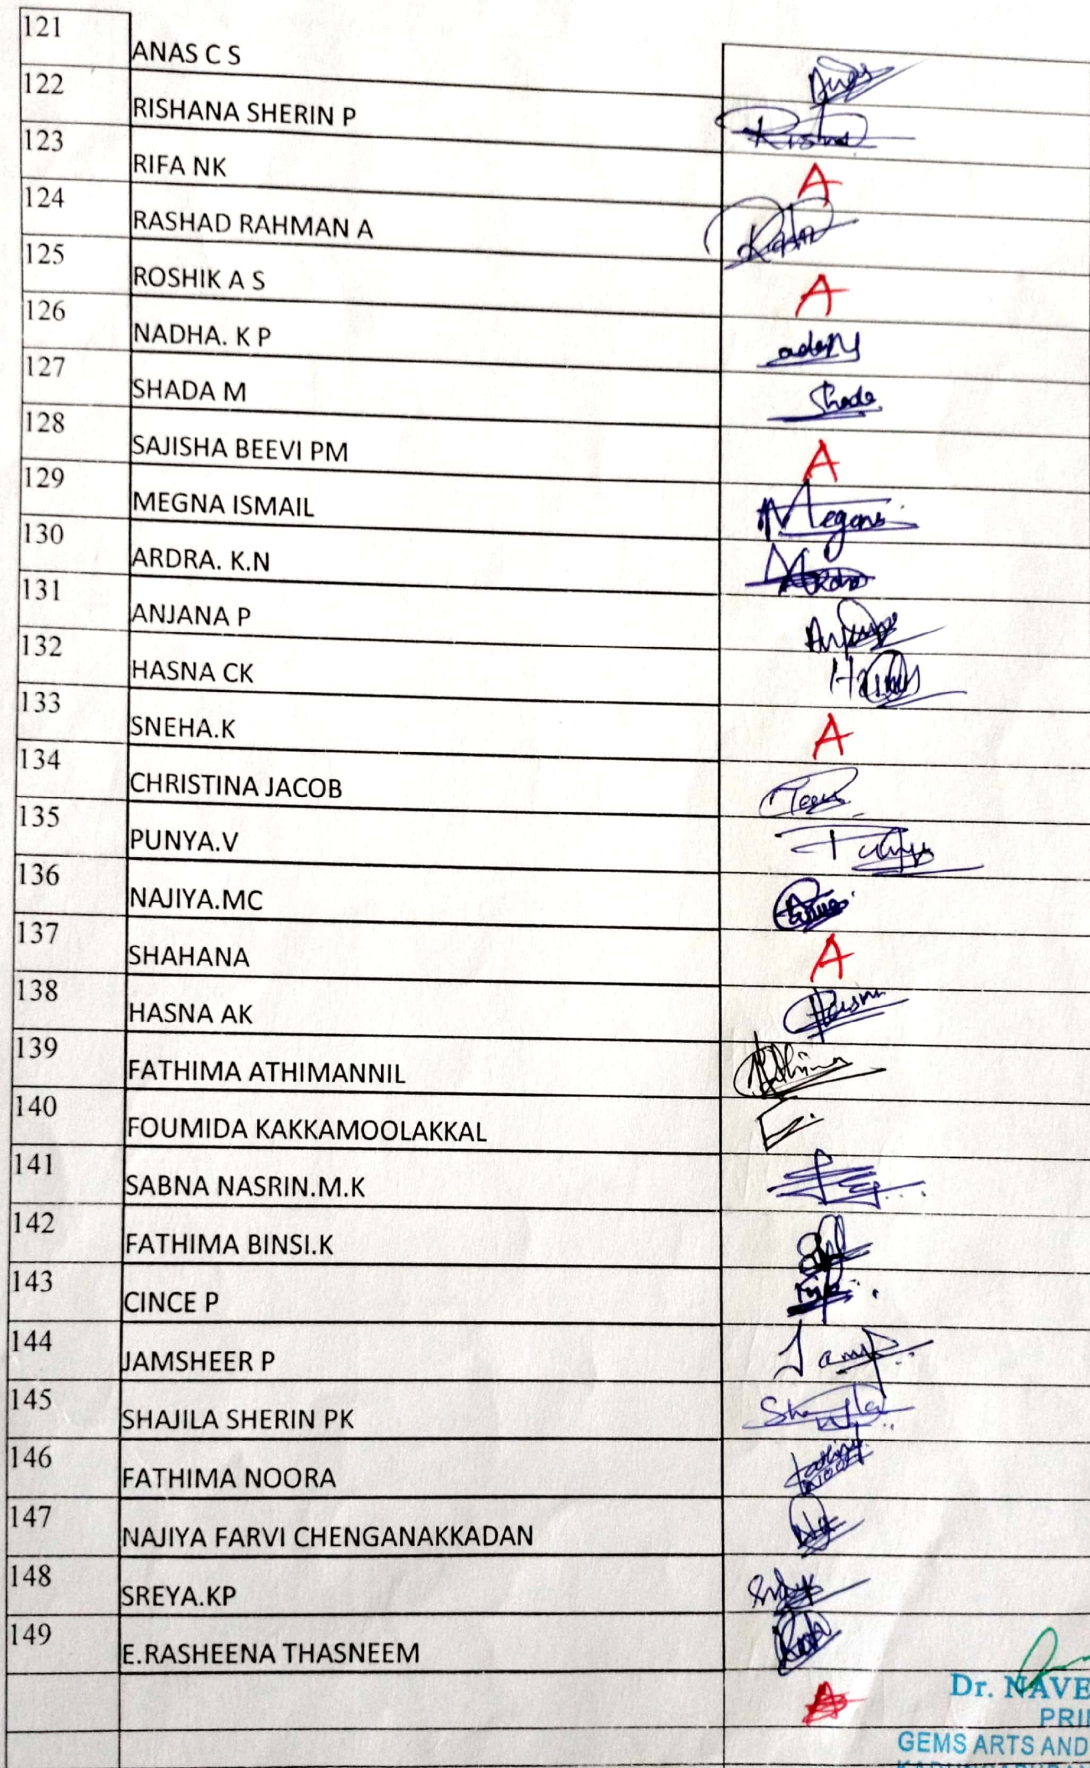 121 ANAS C S
122 RISHANA SHERIN P
123 RIFA NK A
124 RASHAD RAHMAN A
125 ROSHIK A S A
126 NADHA. K P
127 SHADA M Shada
128 SAJISHA BEEVI PM A
129 MEGNA ISMAIL
130 ARDRA. K.N
131 ANJANA P
132 HASNA CK
133 SNEHA.K A
134 CHRISTINA JACOB
135 PUNYA.V
136 NAJIYA.MC
137 SHAHANA A
138 HASNA AK
139 FATHIMA ATHIMANNIL
140 FOUMIDA KAKKAMOOLAKKAL
141 SABNA NASRIN.M.K
142 FATHIMA BINSI.K
143 CINCE P
144 JAMSHEER P
145 SHAJILA SHERIN PK
146 FATHIMA NOORA
147 NAJIYA FARVI CHENGANAKKADAN
148 SREYA.KP
149 E.RASHEENA THASNEEM
Dr. NAVE
PRI
GEMS ARTS AND